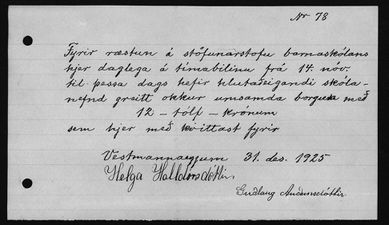 Nr 78
Fyrir ræstun á stofunarstofu barnaskólans
hjer daglega á tímabilinu frá 14. nóv.
til þessa dags hefir hlutaðeigandi skóla-
nefnd greitt okkur umsamda borgun með
12 - tólf - krónum
sem hjer með kvittast fyrir
Vestmannaeyjum 31. des. 1925
Helga Halldórsdóttir
Guðlaug